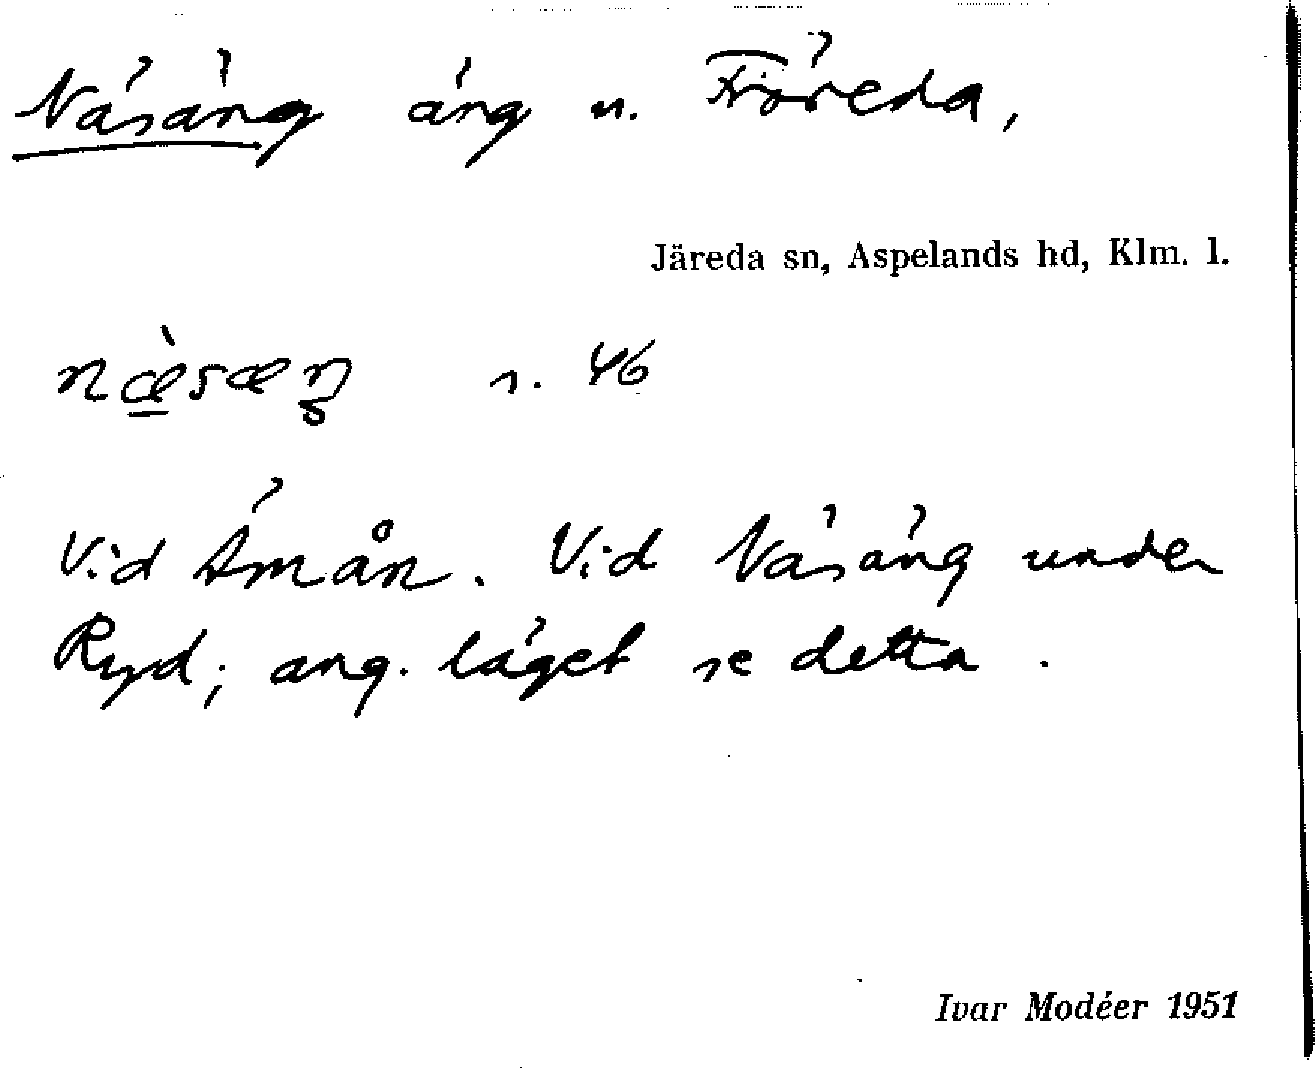 Näsäng äng u. Fröreda,
Järeda sn, Aspelands hd, Klm. l.
næ̠̀sæŋ s. 46
Vid Åmån. Vid Näsäng under
Ryd; ang. läget se detta.
Ivar Modéer 1951